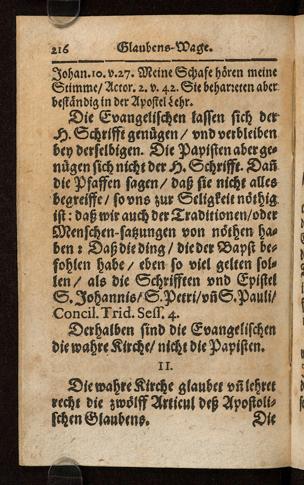 216 Glaubens-Wage.
Johan. 10. v. 27. Meine Schafe hören meine
Stimme/ Actor. 2. v. 42. Sie beharreten aber
beständig in der Apostel Lehr.
Die Evangelischen lassen sich der
H. Schrifft genügen/ vnd verbleiben
bey derselbigen. Die Papisten aber ge-
nügen sich nicht der H. Schrifft. Dañ
die Pfaffen sagen/ daß sie nicht alles
begreiffe/ so vns zur Seligkeit nöthig
ist: daß wir auch der Traditionen/ oder
Menschen-satzungen von nöthen ha-
ben: Daß die ding/ die der Bapst be-
fohlen habe/ eben so viel gelten sol-
len/ als die Schrifften vnd Epistel
S. Johannis/ S. Petri/ vñ S. Pauli/
Concil. Trid. Sess. 4.
Derhalben sind die Evangelischen
die wahre Kirche/ nicht die Papisten.
II.
Die wahre Kirche glaubet vñ lehret
recht die zwölff Articul deß Apostoli-
schen Glaubens. Die